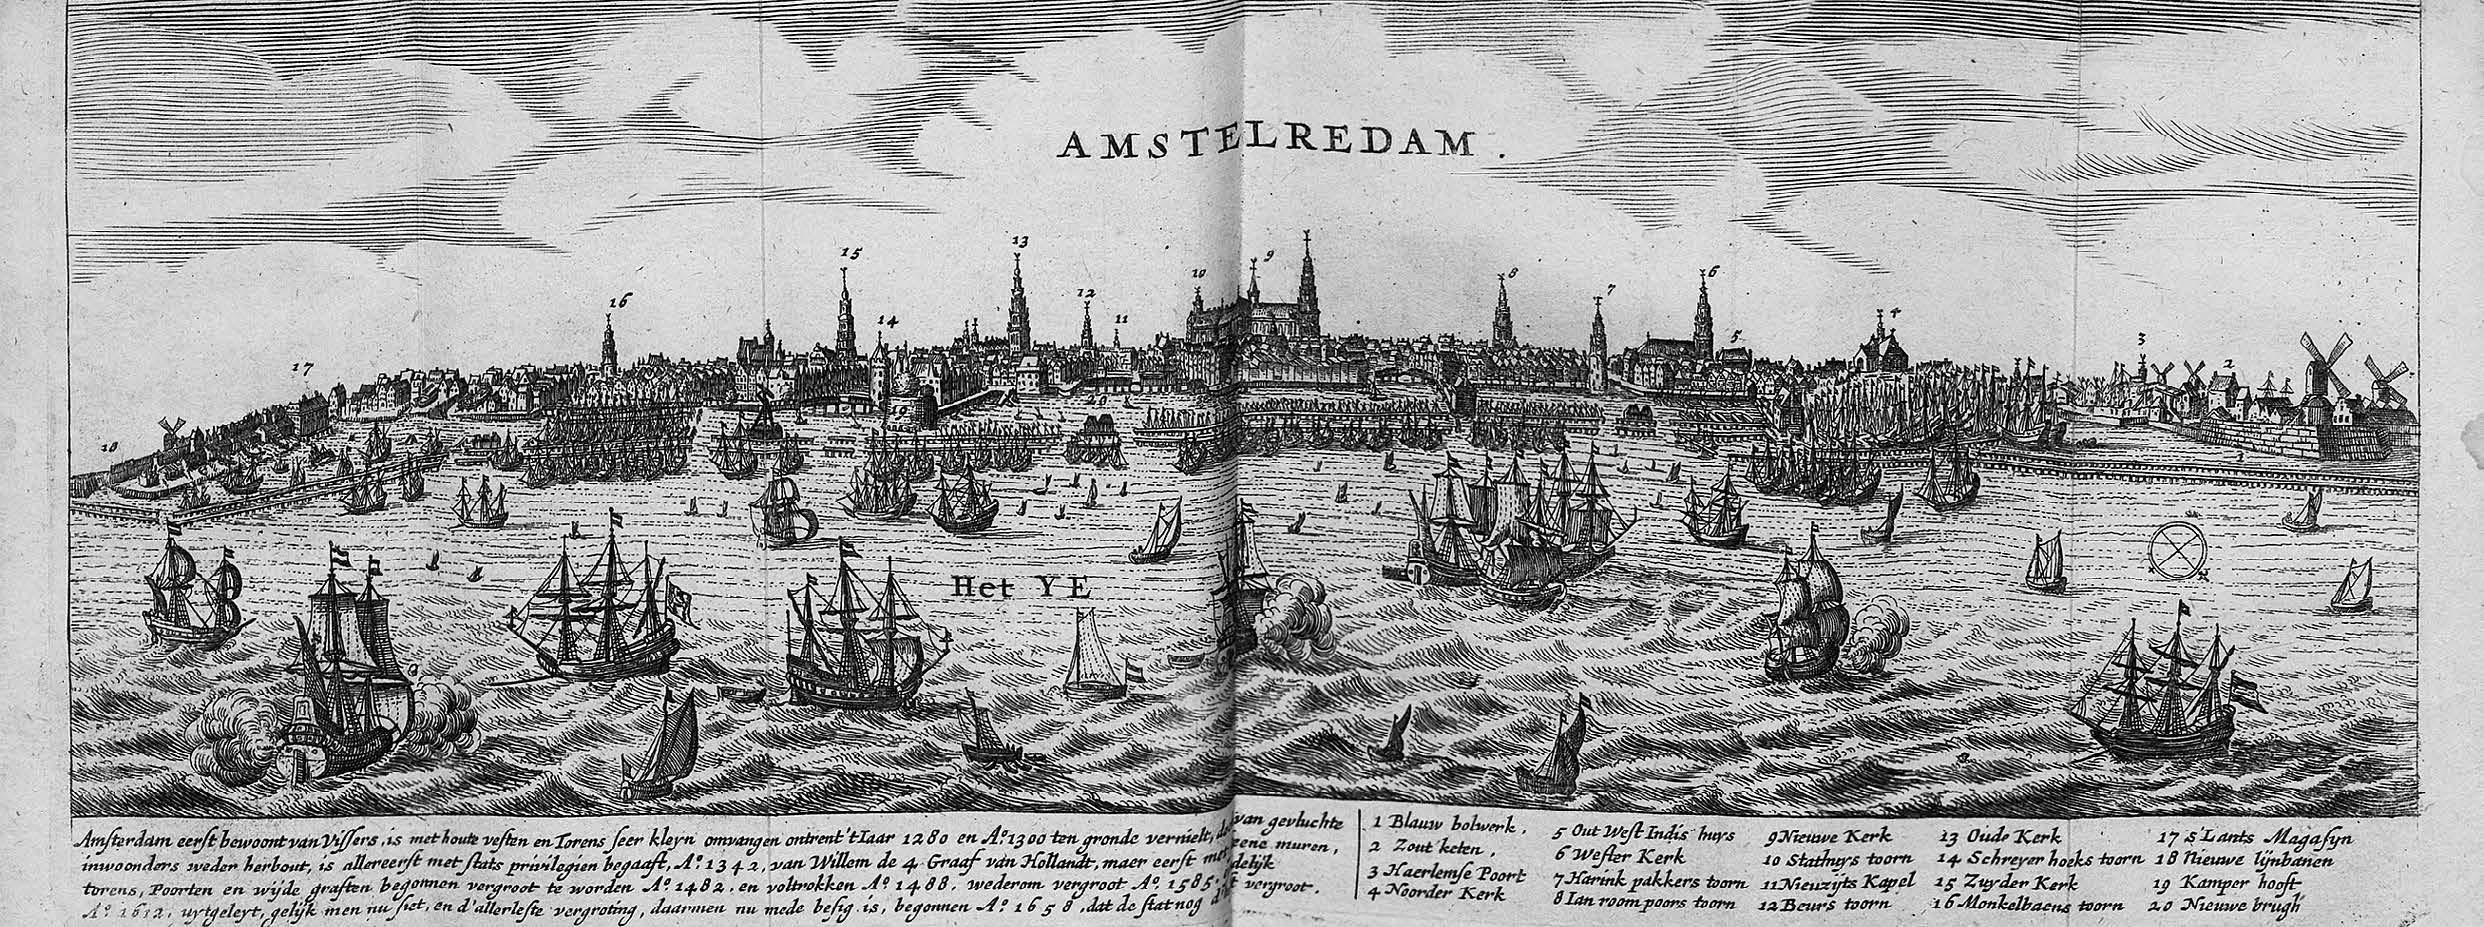 AMSTELREDAM.
13
15
9
10
8
6
12
16
7
11
14
4
5
3
17
2
20
19
18
1
Het YE
Amsterdam eerst bewoont van Vissers, is met houte vesten en Torens seer kleyn omvangen ontrent 't Iaar 1280 en Aº. 1300 ten gronde vernielt, van gevluchte
inwoonders weder herbout, is allereerst met stats privilegien begaaft, Aº. 1342, van Willem de 4. Graaf van Hollandt, maer eerst muren,
torens, Poorten en wijde graften begonnen vergroot te worden Aº. 1482. en voltrokken Aº. 1488. wederom vergroot Aº. 1585.
Aº. 1612, uytgeleyt, gelijk men nu siet, en d'allerleste vergroting, daarmen nu mede besig is, begonnen Aº. 1658, dat de stat nog vergroot.
1 Blauw bolwerk.
2 Zout keten.
3 Haerlemse Poort
4 Noorder Kerk
5 Out West Indis huys
6 Wester Kerk
7 Harink pakkers toorn
8 Ian room poors toorn
9 Nieuwe Kerk
10 Stathuys toorn
11 Nieuzijts Kapel
12 Beurs toorn
13 Oude Kerk
14 Schreyer hoeks toorn
15 Zuyder Kerk
16 Monkelbaens toorn
17 s'Lants Magasyn
18 Nieuwe lijnbanen
19 Kamper hooft
20 Nieuwe brugh